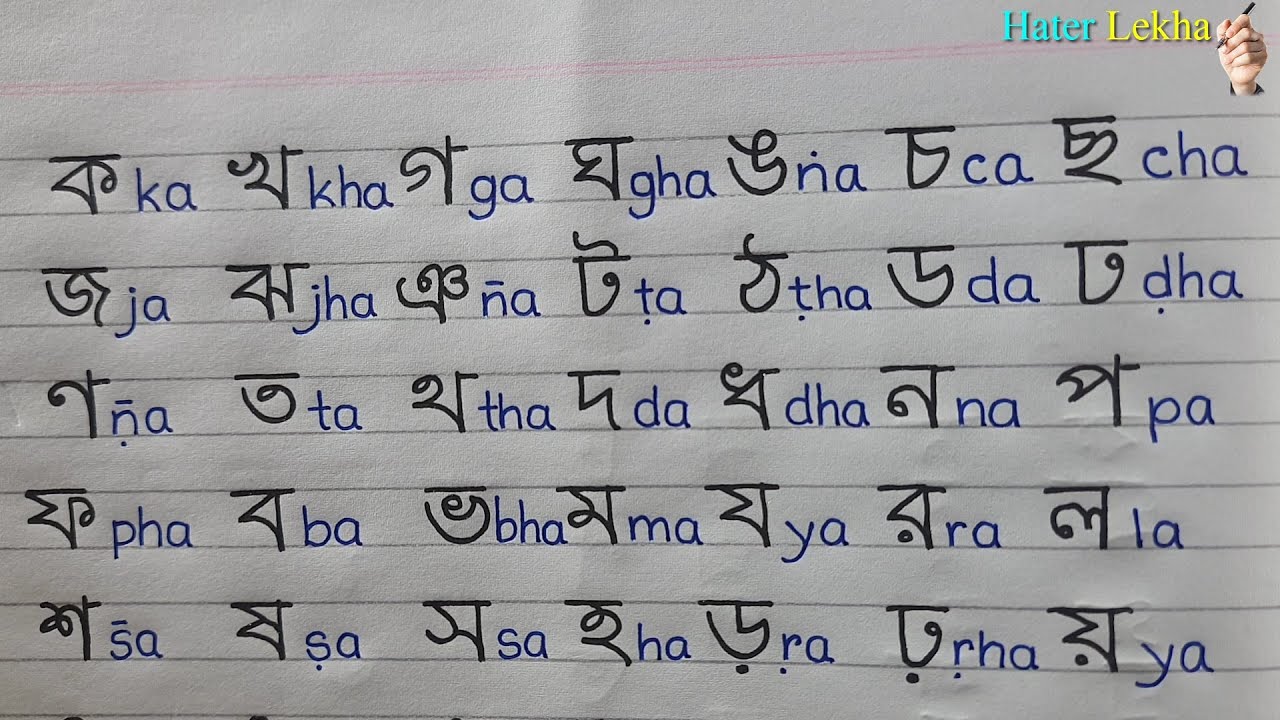 Hater Lekha
ক ka খ kha গ ga ঘ gha ঙ ṅa চ ca ছ cha
জ ja ঝ jha ঞ n̄a ট ṭa ঠ ṭha ড da ঢ ḍha
ণ ṇ̄a ত ta থ tha দ da ধ dha ন na প pa
ফ pha ব ba ভ bha ম ma য ya র ra ল la
শ s̄a ষ ṣa স sa হ ha ড় ṛa ঢ় ṛha য় ya